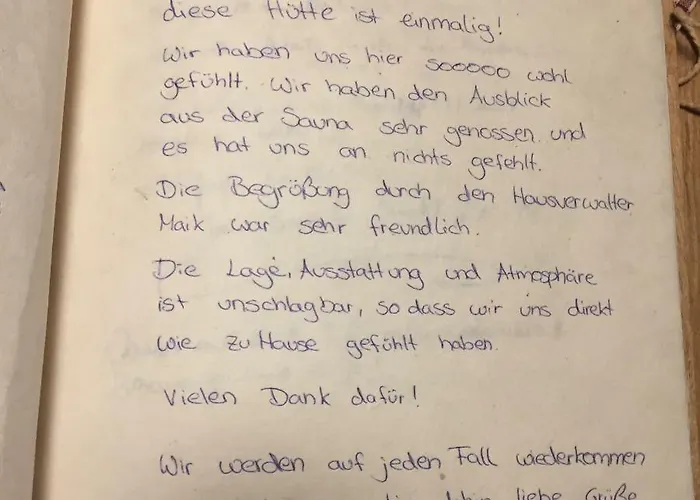 diese Hütte ist einmalig!
Wir haben uns hier sooooo wohl
gefühlt. Wir haben den Ausblick
aus der Sauna sehr genossen und
es hat uns an nichts gefehlt.
Die Begrüßung durch den Hausverwalter
Maik war sehr freundlich.
Die Lage, Ausstattung und Atmosphäre
ist unschlagbar, so dass wir uns direkt
wie zu Hause gefühlt haben.
Vielen Dank dafür!
Wir werden auf jeden Fall wiederkommen
liebe Grüße